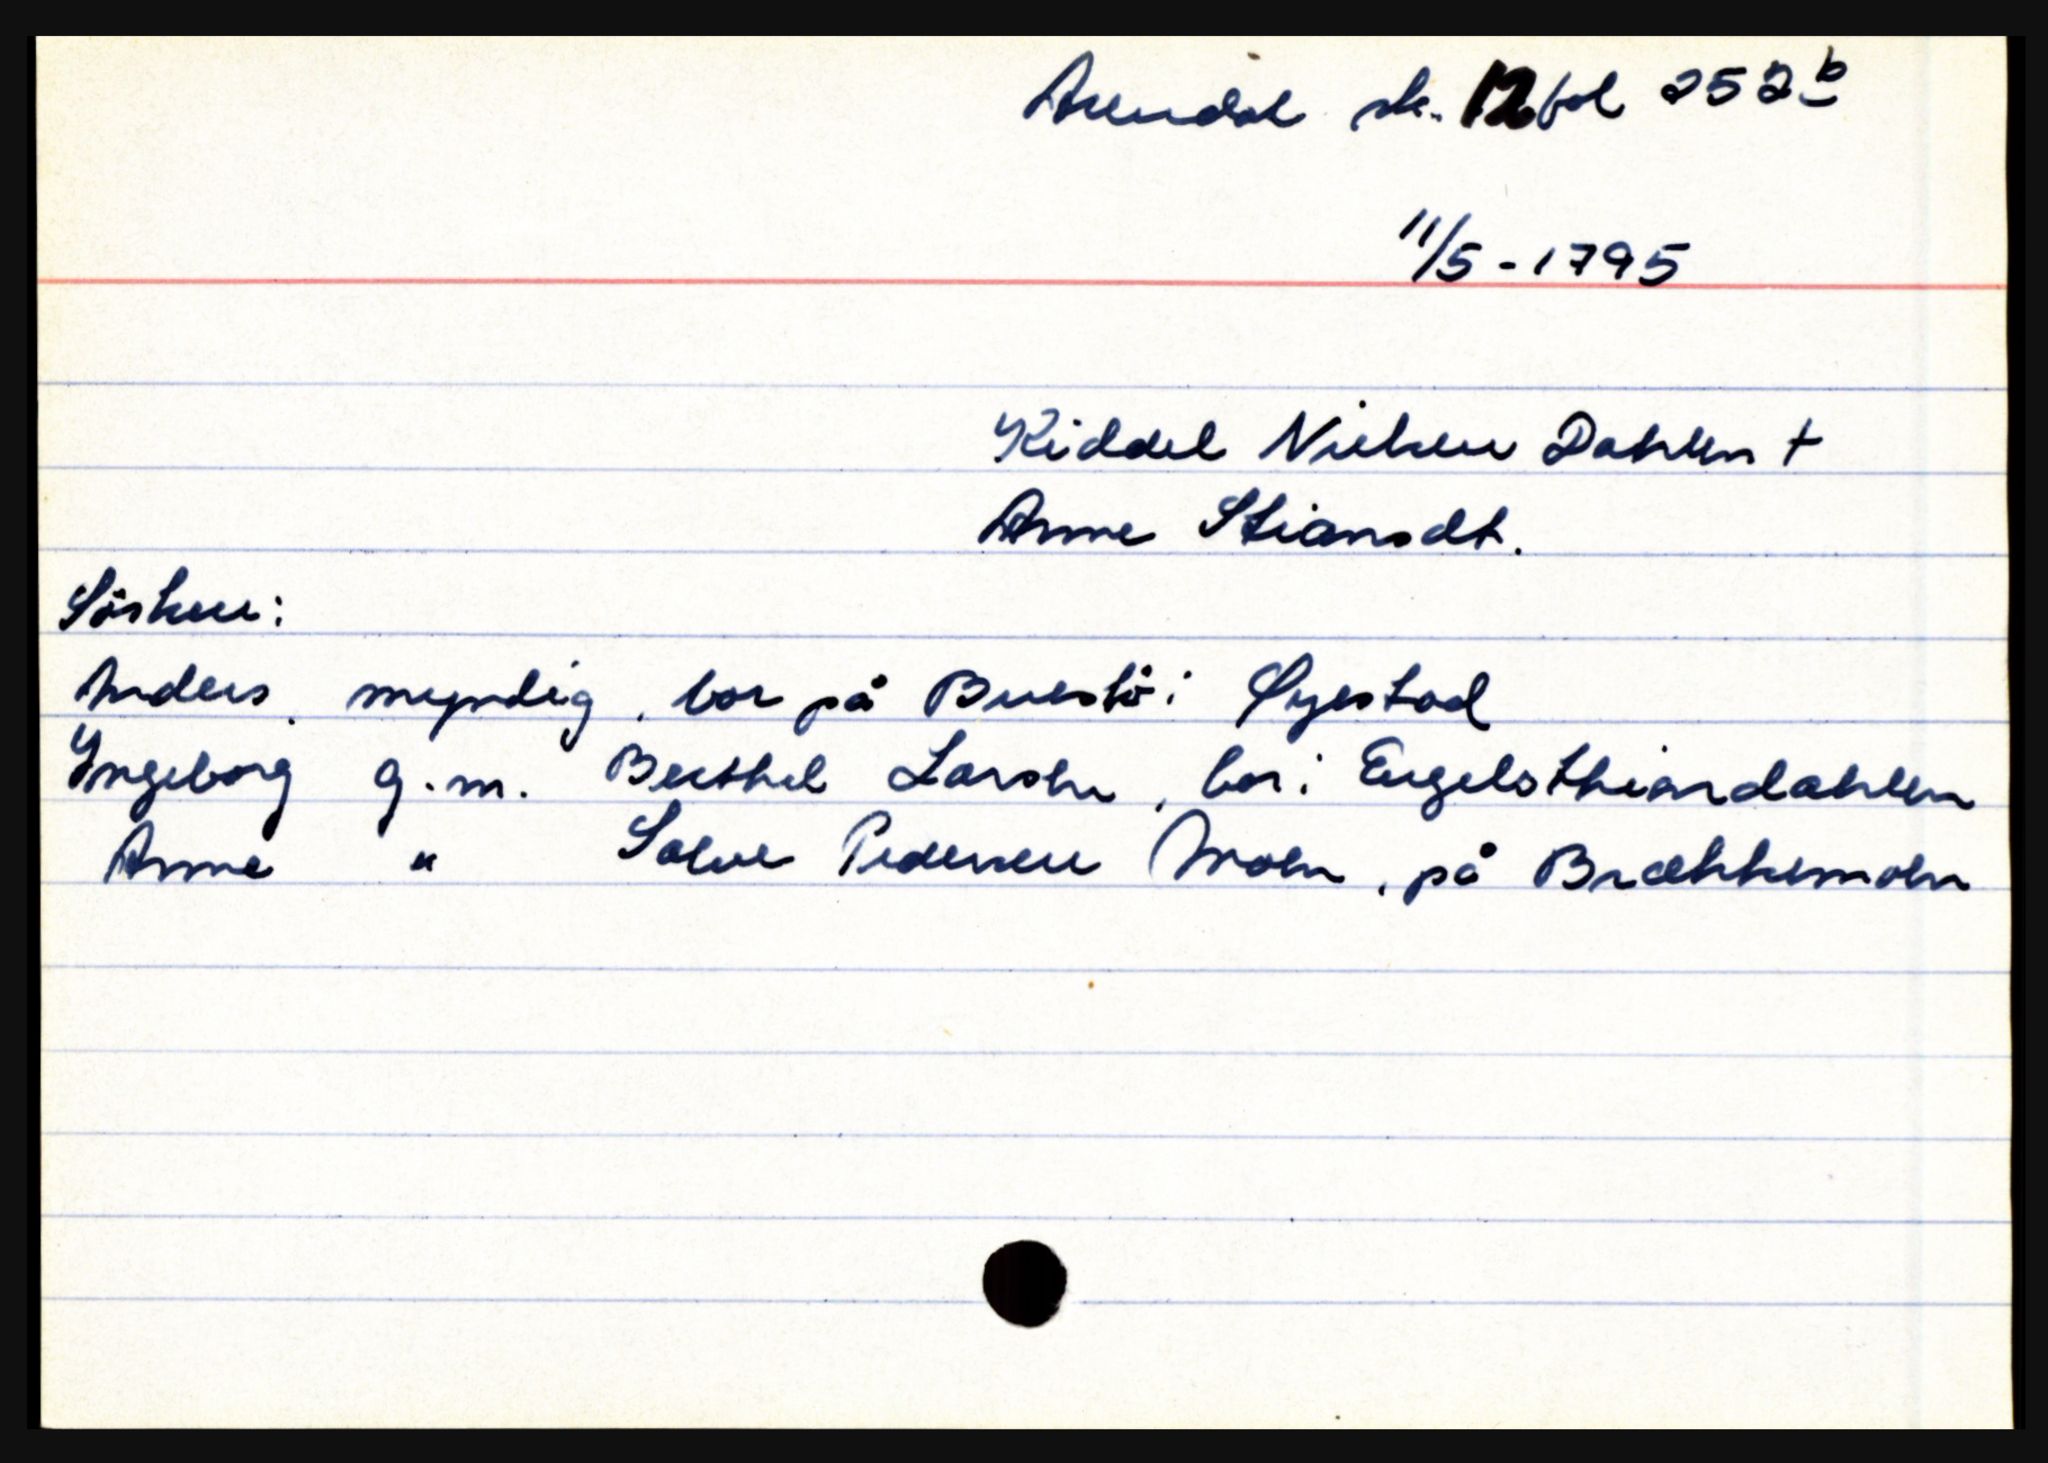 Arendal sk. 12 fol 252 b
11/5-1795
Kiddel Nielsen Dahlen +
Anne Stiansdt.
Søsken:
Anders, myndig, bor på Buestø i Øyestad
Yngeborg g.m. Berthel Larsen, bor i Engelsthiandahlen
Anne " Salve Pedersen Moen, på Brækkemoen